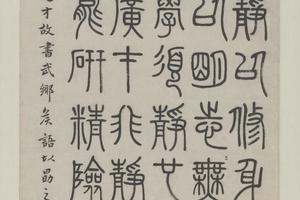 靜以修身
以明志無
學須靜也
廣才非靜
能研精險
才故書武鄉矦語以勗之